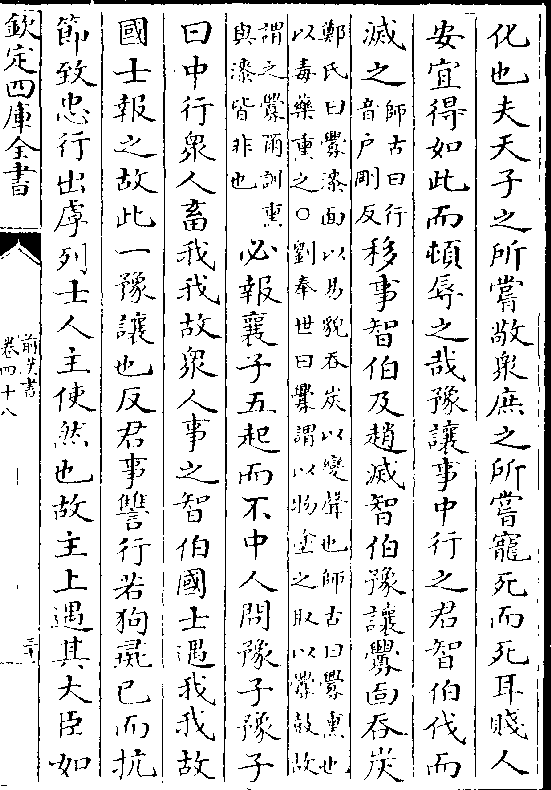 化也夫天子之所嘗敬衆庶之所嘗寵死而死耳賤人
安宜得如此而頓辱之哉豫讓事中行之君智伯伐而
滅之師古曰行
音户剛反移事智伯及趙滅智伯豫讓釁面吞炭
鄭氏曰釁漆面以易貌吞炭以變聲也師古曰釁熏也
以毒藥熏之○劉奉世曰釁謂以物塗之取以釁鼓故
謂之釁爾訓熏
與漆皆非也必報襄子五起而不中人問豫子豫子
曰中行衆人畜我我故衆人事之智伯國士遇我我故
國士報之故此一豫讓也反君事讐行若狗彘已而抗
節致忠行出虖列士人主使然也故主上遇其大臣如
欽定四庫全書
前漢書
卷四十八
三十